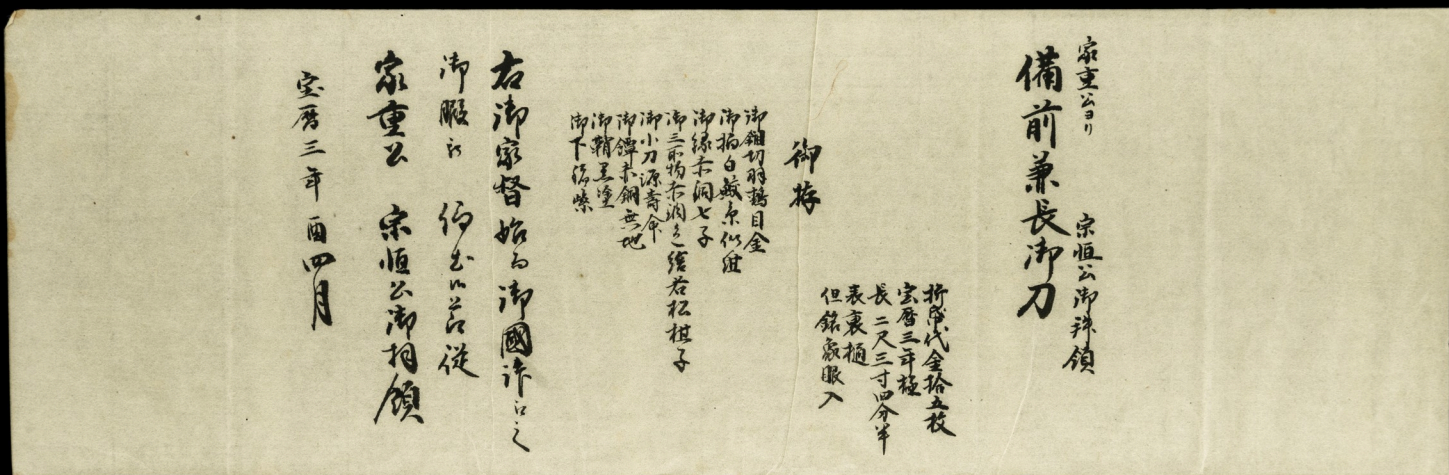 家重公ヨリ
宗恒公御拝領
備前兼長御刀
折帋代金拾五枚
宝暦三年極
長二尺三寸四分半
表裏樋
但銘象眼入
御拵
御鎺切羽鵐目金
御柄白鮫糸似紺
御縁赤洞七子
御三所物赤洞色絵若松棋子
御小刀源寿命
御鐔赤銅無地
御鞘黒塗
御下緒紫
右御家督始而御國許江之
御暇被 仰出候節従
家重公 宗恒公御拝領
宝暦三年酉四月